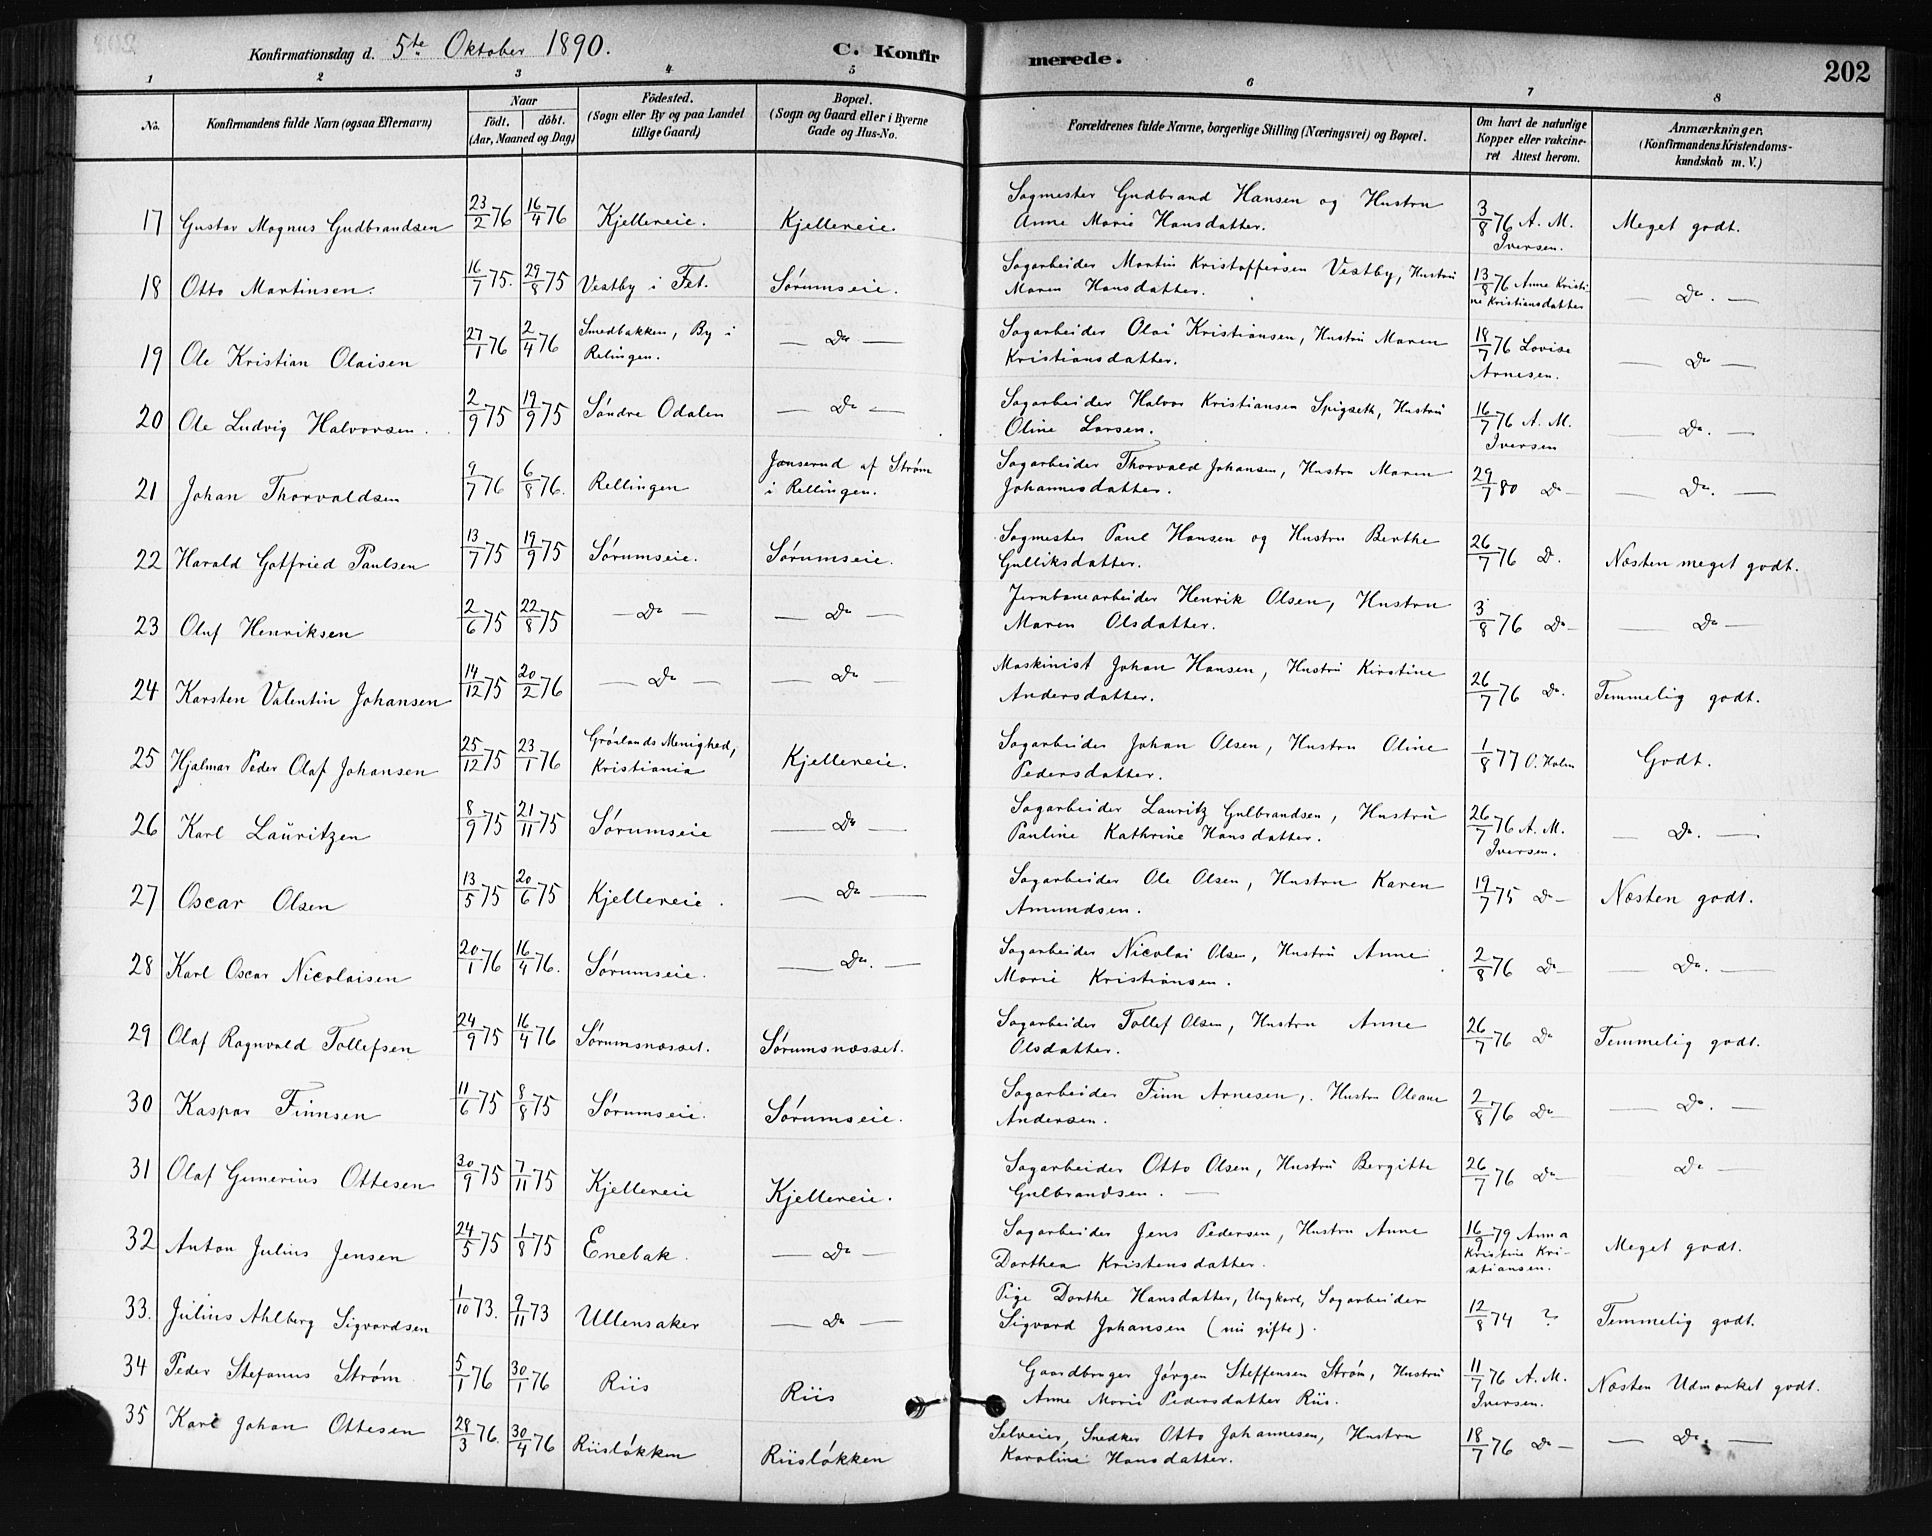 Konfirmationsdag d. 5te Oktober 1890. C. Konfirmerede. 202
1 2 3 4 5 6 7 8
No. Konfirmandens fulde Navn (ogsaa Efternavn) Naar födt. döbt. (Aar, Maaned og Dag) Födested. (Sogn eller By og paa Landet tillige Gaard) Bopæl. (Sogn og Gaard eller i Byerne Gade og Hus-No. Forældrenes fulde Navne, borgerlige Stilling (Næringsvei) og Bopæl. Om havt de naturlige Kopper eller vakcineret Attest herom. Anmærkninger. (Konfirmandens Kristendomskundskab m. V.)
17 Gustav Magnus Gudbrandsen 23/2 76 16/4 76 Kjellereie. Kjellereie. Sagmester Gudbrand Hansen og Hustru Anne Marie Hansdatter. 3/8 76 A. M. Iversen. Meget godt.
18 Otto Martinsen. 16/7 75. 29/8 75 Vestby i Fet. Sørumseie. Sagarbeider Martin Kristoffersen Vestby, Hustru Maren Hansdatter. 13/8 76 Anne Kristine Kristiansdatter — Do. —
19 Ole Kristian Olaisen 27/1 76 2/4 76 Smedbakken, By i Relingen. — Do — Sagarbeider Olai Kristiansen, Hustru Maren Kristiansdatter. 18/7 76 Lovise Arnesen. — Do —
20 Ole Ludvig Halvorsen. 2/9 75 19/9 75 Søndre Odalen — Do — Sagarbeider Halvor Kristiansen Spigseth, Hustru Oline Larsen. 16/7 76 A. M. Iversen — Do. —
21 Johan Thorvaldsen 9/7 76 6/8 76. Rellingen Jonserud af Strøm i Rellingen. Sagarbeider Thorvald Johansen, Hustru Maren Johannesdatter. 29/7 80 Do — — Do. —
22 Harald Gotfried Paulsen 13/7 75 19/9 75 Sørumseie. Sørumseie. Sagmester Paul Hansen og Hustru Berthe Gulliksdatter. 26/7 76 D. Næsten meget godt.
23 Oluf Henriksen 2/6 75 22/8 75 — Do — — Do — Jernbanearbeider Henrik Olsen, Hustru Maren Olsdatter. 3/8 76 Do — — Do —
24 Karsten Valentin Johansen 14/12 75 20/2 76 — Do — — Do — Maskinist Johan Hansen, Hustru Kirstine Andersdatter. 26/7 76 Do. Temmelig godt.
25 Hjalmar Peder Olaf Johansen 25/12 75 23/1 76 Grønlands Menighed, Kristiania Kjellereie. Sagarbeider Johan Olsen, Hustru Oline Pedersdatter. 1/8 77 O. Holm Godt.
26 Karl Lauritzen 8/9 75 21/11 75 Sørumseie — Do — Sagarbeider Lauritz Gulbrandsen, Hustru Pauline Kathrine Hansdatter. 26/7 76 A. M. Iversen. — Do. —
27 Oscar Olsen 13/5 75 20/6 75 Kjellereie. — Do — Sagarbeider Ole Olsen, Hustru Karen Amundsen. 19/7 75 Do — Næsten godt.
28 Karl Oscar Nicolaisen 20/1 76 16/4 76. Sørumseie. — Do. — Sagarbeider Nicolai Olsen, Hustru Anne Marie Kristiansen. 2/8 76 Do — — Do. —
29 Olaf Ragnvald Tollefsen 24/9 75 16/4 76 Sørumsnæsset. Sørumsnæsset. Sagarbeider Tollef Olsen, Hustru Anne Olsdatter. 26/7 76 Do Temmelig godt.
30 Kaspar Finnsen 11/6 75 8/8 75 Sørumseie. Sørumseie. Sagarbeider Finn Arnesen, Hustru Oleane Andersen. 2/8 76 Do — — Do. —
31 Olaf Gunerius Ottesen 30/9 75 7/11 75 Kjellereie Kjellereie. Sagarbeider Otto Olsen, Hustru Bergitte Gulbrandsen. — 26/7 76 Do — Do —
32 Anton Julius Jensen 24/5 75 1/8 75 Enebak. — Do — Sagarbeider Jens Pedersen, Hustru Anne Dorthea Kristensdatter. 16/9 79 Anna Kristine Kristiansen. Meget godt.
33. Julius Ahlberg Sigvardsen 1/10 73. 9/11 73 Ullensaker — Do — Pige Dorthe Hansdatter, Ungkarl, Sagarbeider Sigvard Johansen (nu gifte). 12/8 74 ? Temmelig godt.
34 Peder Stefanus Strøm 5/1 76 30/1 76 Riis Riis Gaardbruger Jørgen Steffensen Strøm, Hustru Anne Marie Pedersdatter Riis. 11/7 76 A. M. Iversen. Næsten Udmærket godt.
35 Karl Johan Ottesen 28/3 76. 30/4 76 Riisløkken Riisløkken Selveier, Snedker Otto Johannesen, Hustru Karoline Hansdatter. 18/7 76 Do — — Do. —